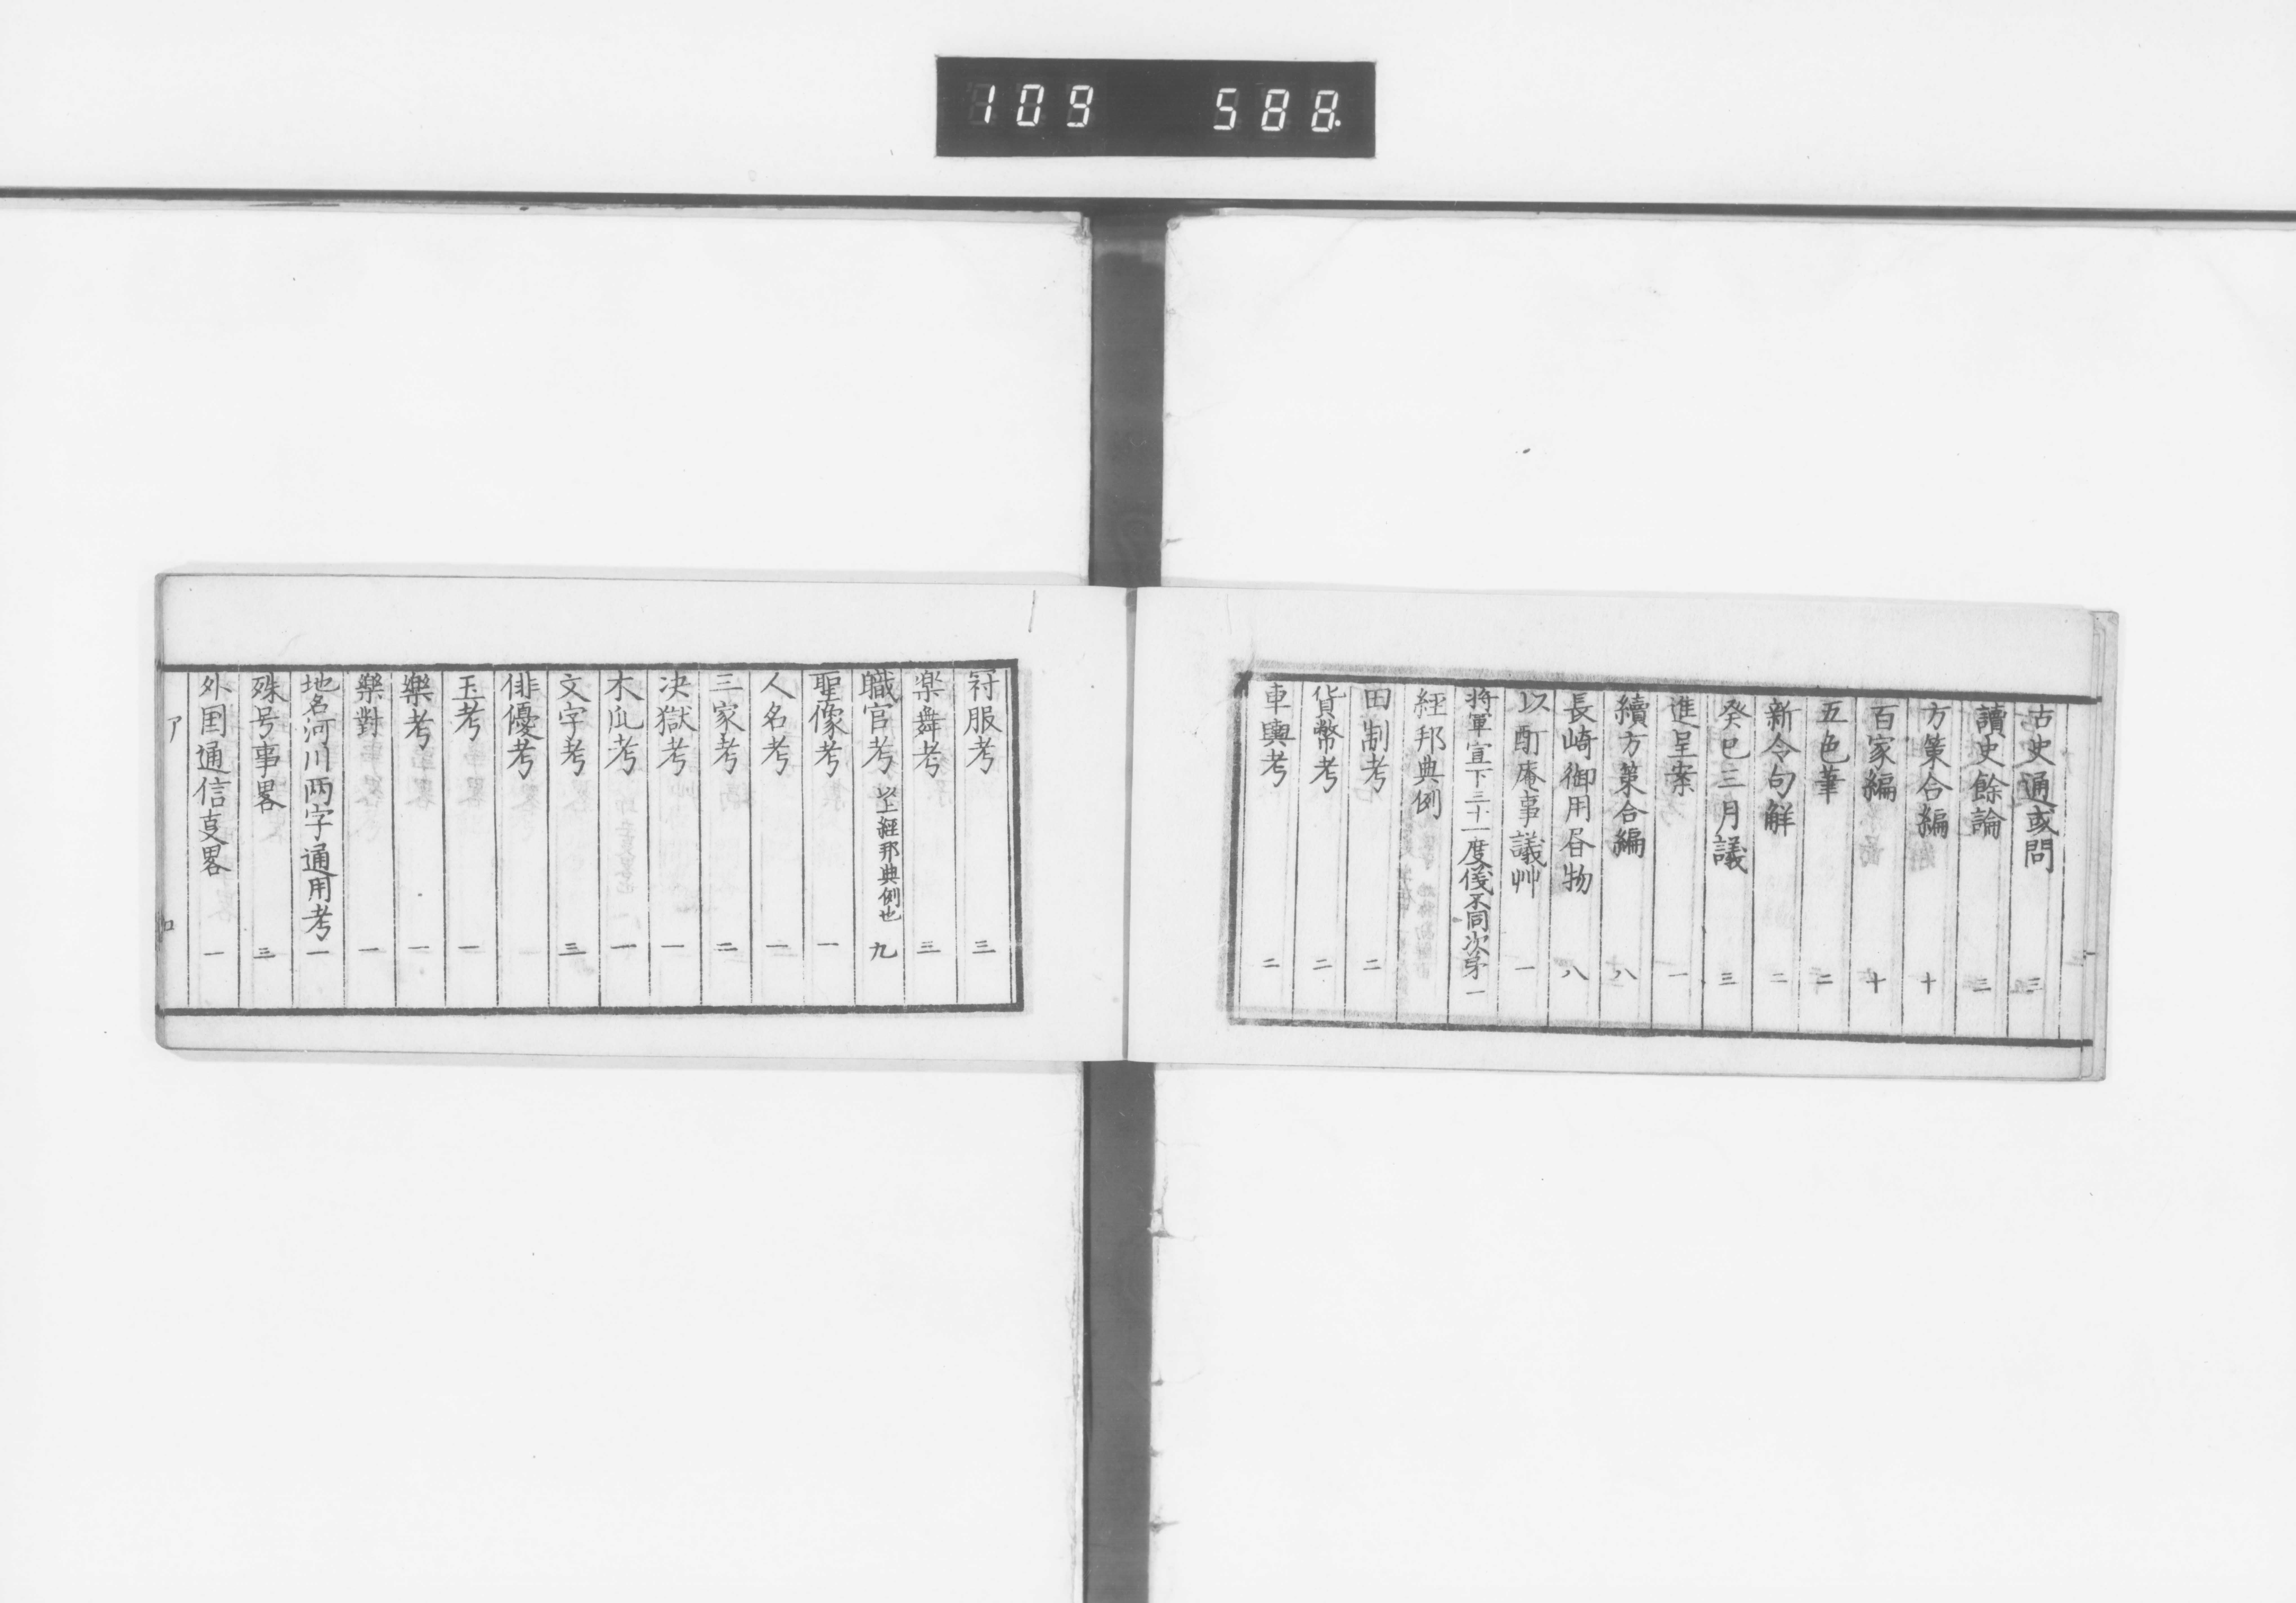 109 588.
古史通或問 三
讀史餘論 三
方策合編 十
百家編 十
五色筆 二
新令句解 二
癸巳三月議 三
進呈案 一
續方策合編 八
長崎御用留物 八
以酊庵事議艸 一
將軍宣下三十一度儀不同次第 一
經邦典例
田制考 二
貨幣考 二
車輿考 二
冠服考 三
楽舞考 三
職官考 以上經邦典例也 九
聖像考 一
人名考 一
三家考 二
决獄考 一
木瓜考 一
文字考 三
俳優考
玉考 一
樂考 一
樂對 一
地名河川两字通用考 一
殊号事畧 三
外国通信事畧 一